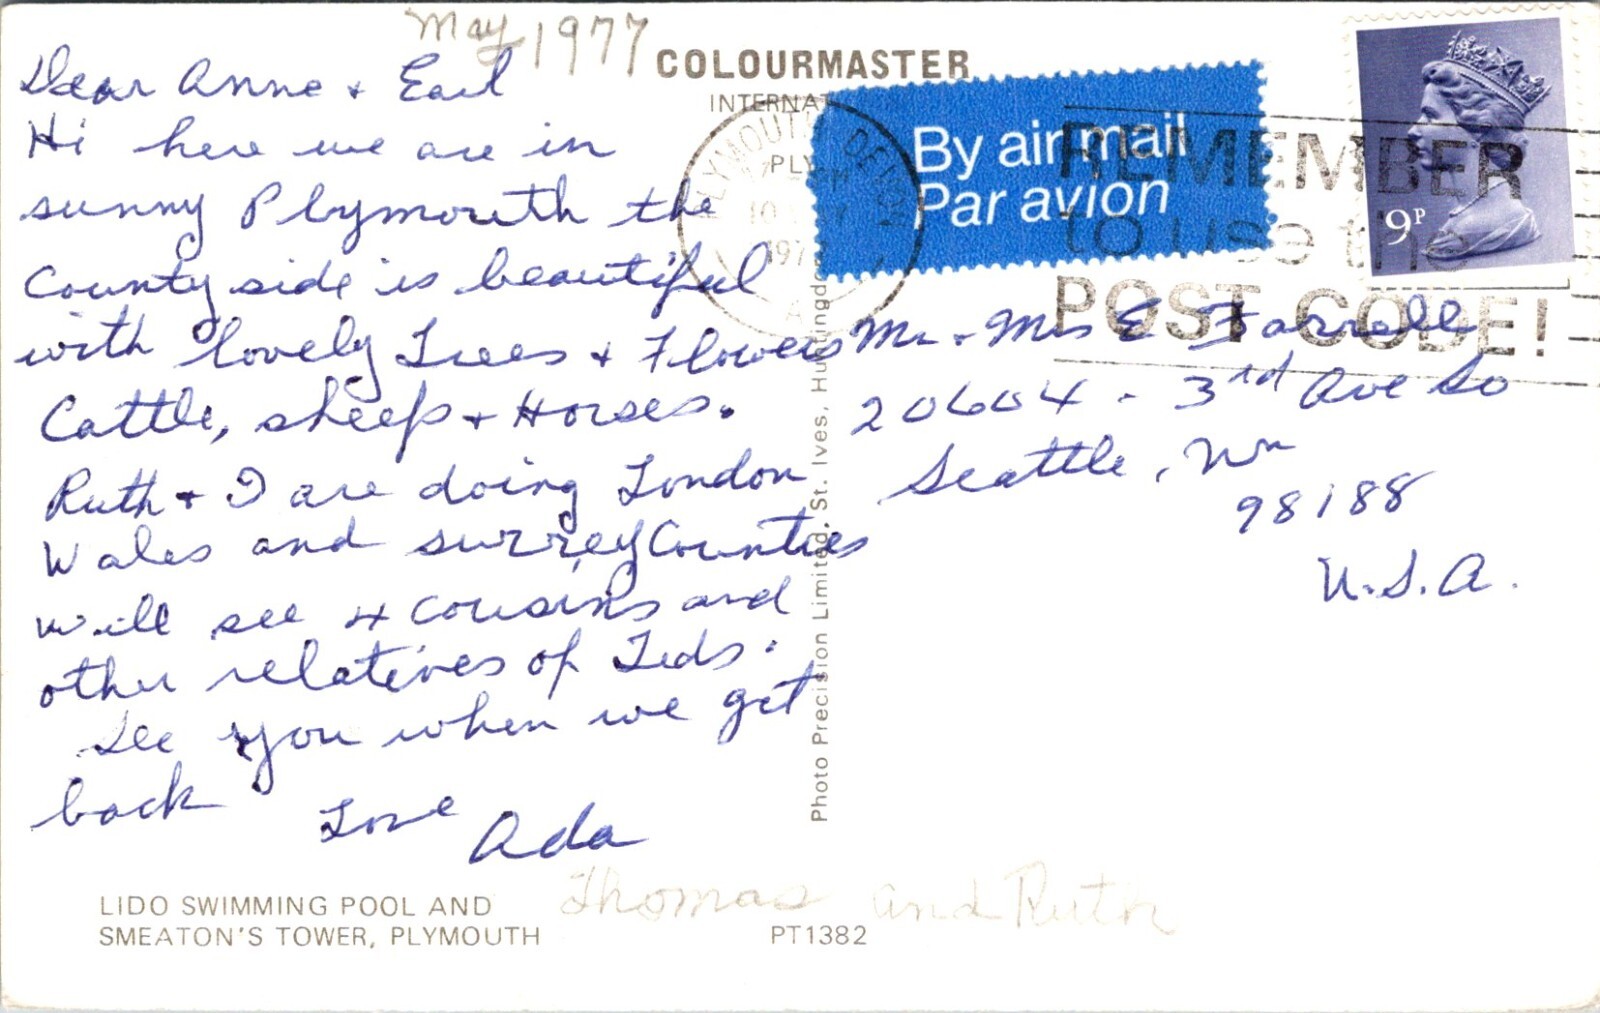 May 1977
Dear Anne + Earl
Hi here we are in
sunny Plymouth the
County side is beautiful
with lovely Trees + Flowers
Cattle, sheep + Horses.
Ruth + I are doing London
Wales and surrey Counties
will see 4 cousins and
other relatives of Teds.
See you when we get
back
Love Ada
Thomas and Ruth
LIDO SWIMMING POOL AND
SMEATON'S TOWER, PLYMOUTH
PT1382
COLOURMASTER
INTERNAT
PLY
Photo Precision Limited, St. Ives, Huntingd
PLYMOUTH DEVON
10
197
A
By air mail
Par avion
REMEMBER
to use the
POST CODE!
9P
Mr. Mrs E Farrell
20604 - 3rd Ave So
Seattle, Wn
98188
U.S.A.